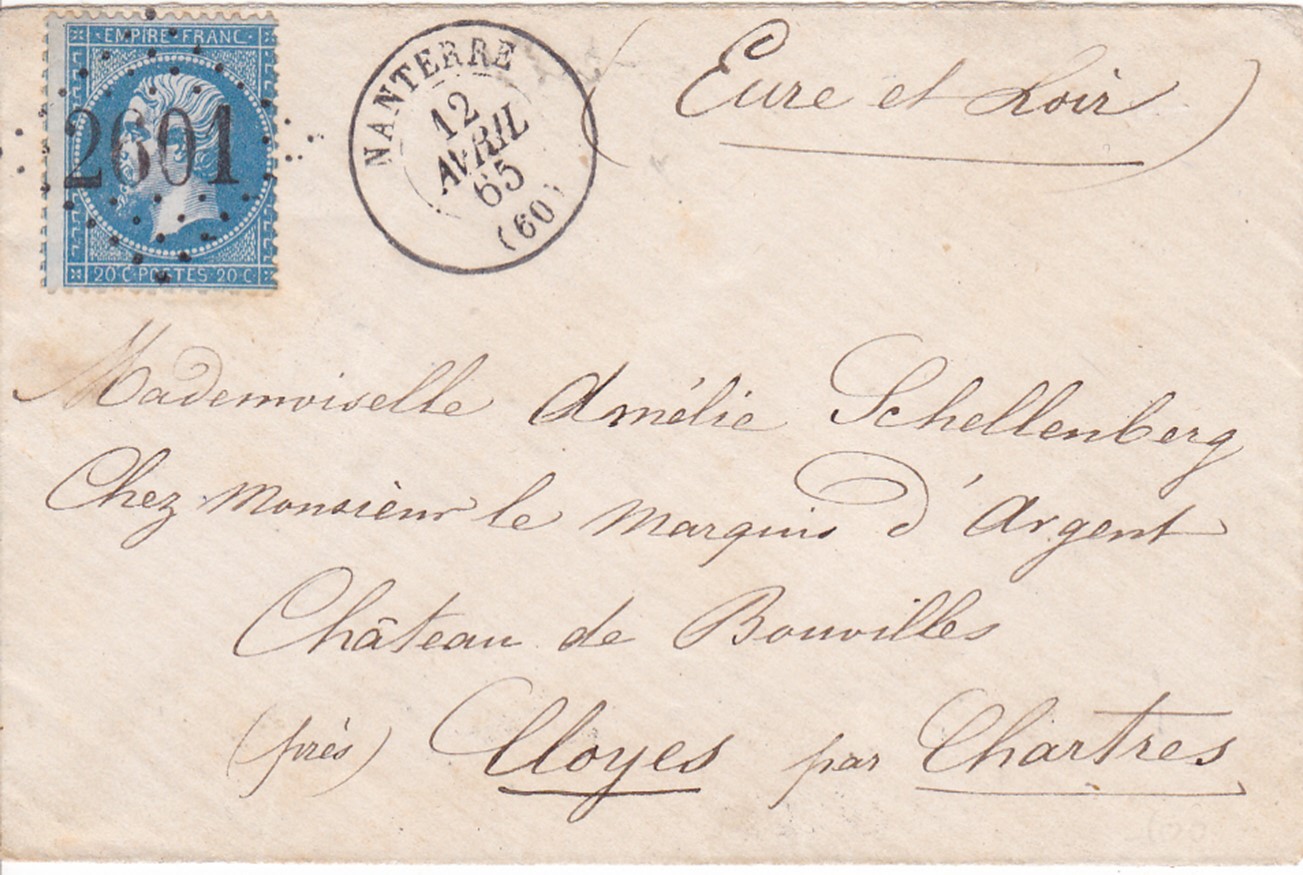 EMPIRE FRANC
2601
20 C POSTES 20 C
NANTERRE
12
AVRIL
65
(60)
(Eure et Loir)
Mademoiselle Amélie Schellenberg
Chez Monsieur le Marquis d'Argent
Château de Bouvilles
(près) Cloyes par Chartres